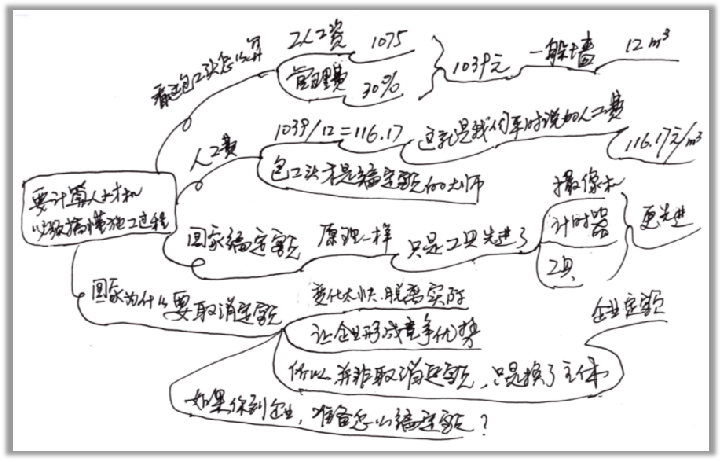 要计算人材机
必须搞懂施工过程
看包工头怎么算
工人工资 1075
管理费 30%
1039元
一般土墙
12m³
人工费
1039/12=116.17
这就是我们平时说的人工费
116.17元/m³
包工头才是编定额的大师
国家编定额
原理一样
只是工具先进了
摄像机
计时器
工具
更先进
国家为什么要取消定额
变化太快.脱离实际
让企业形成竞争优势
所以并非取消定额,只是换了主体
企业定额
如果你到企业,准备怎么编定额?